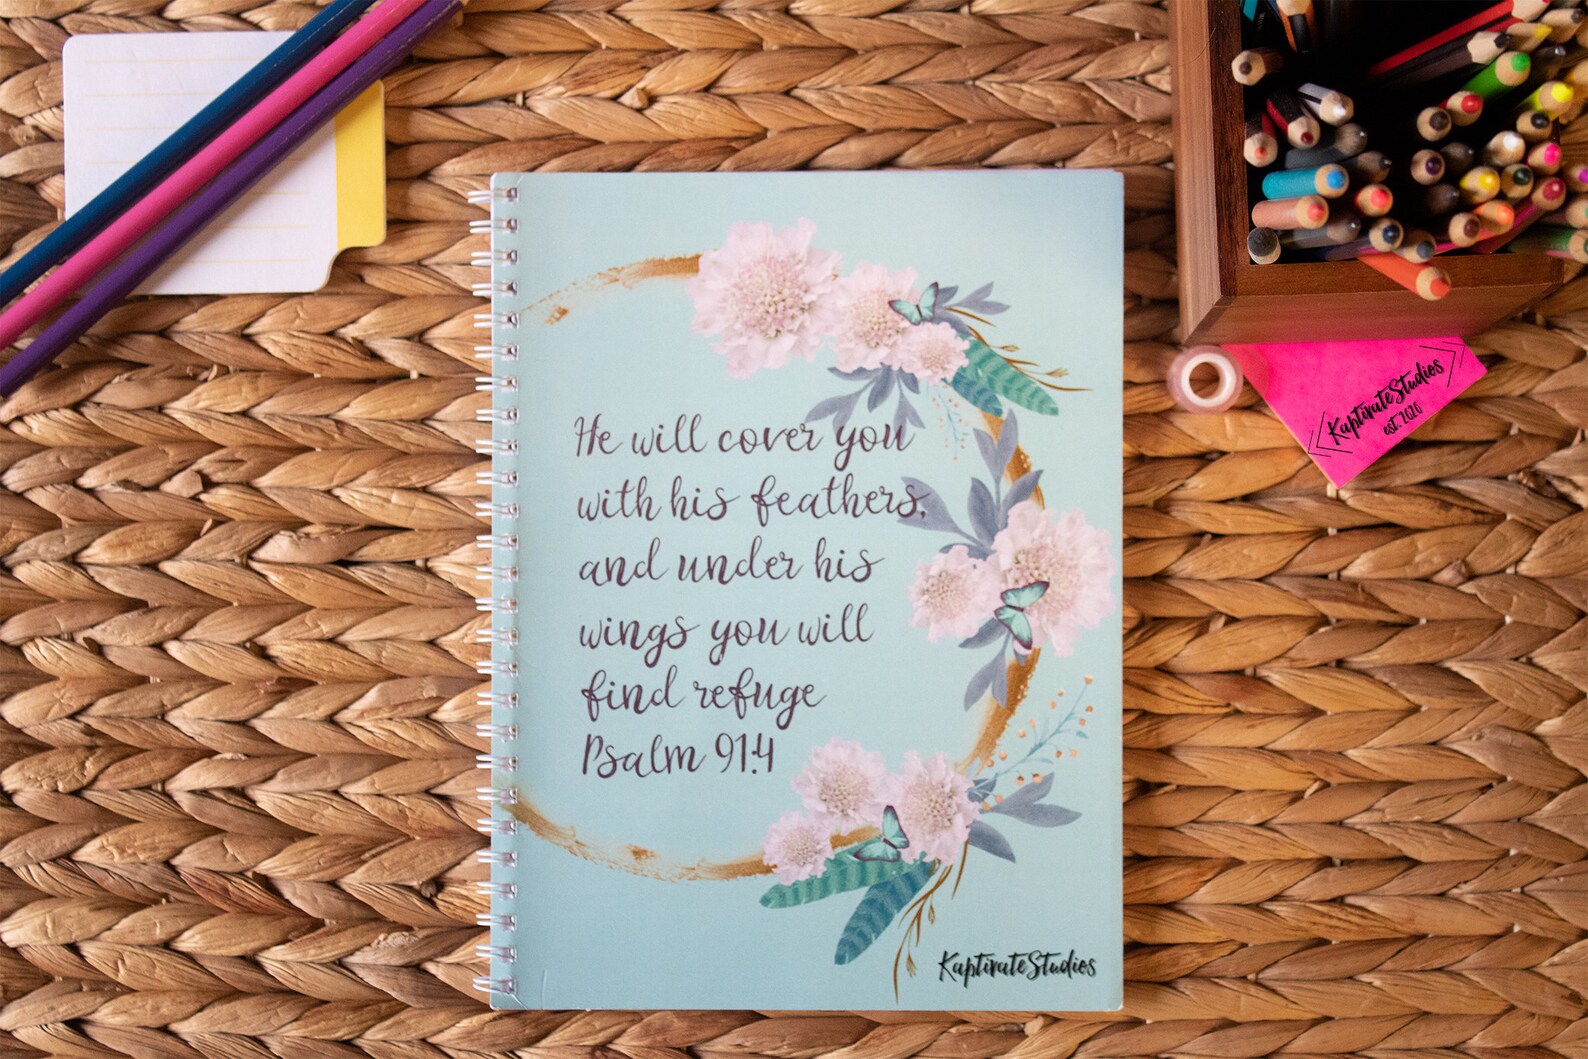 He will cover you
with his feathers,
and under his
wings you will
find refuge
Psalm 91:4
KaptivateStudios
KaptivateStudios
est. 2026